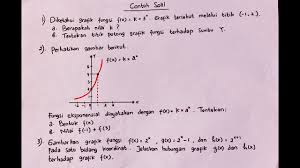 Contoh Soal
1). Diketahui grafik fungsi f(x) = k × aˣ. Grafik tersebut melalui titik (-1, 2).
a. Berapakah nilai k ?
b. Tentukan titik potong grafik fungsi terhadap sumbu Y.
2). Perhatikan gambar berikut.
Y
f(x) = k × aˣ
X
Fungsi eksponensial dinyatakan dengan f(x) = k × aˣ. Tentukan:
a. Bentuk f(x)
b. Nilai f(-1) + f(3)
3). Gambarkan grafik fungsi f(x) = 2ˣ, g(x) = 2ˣ-1, dan h(x) = 2ˣ⁺¹
pada satu bidang koordinat. Jelaskan hubungan grafik g(x) dan h(x)
terhadap grafik f(x).